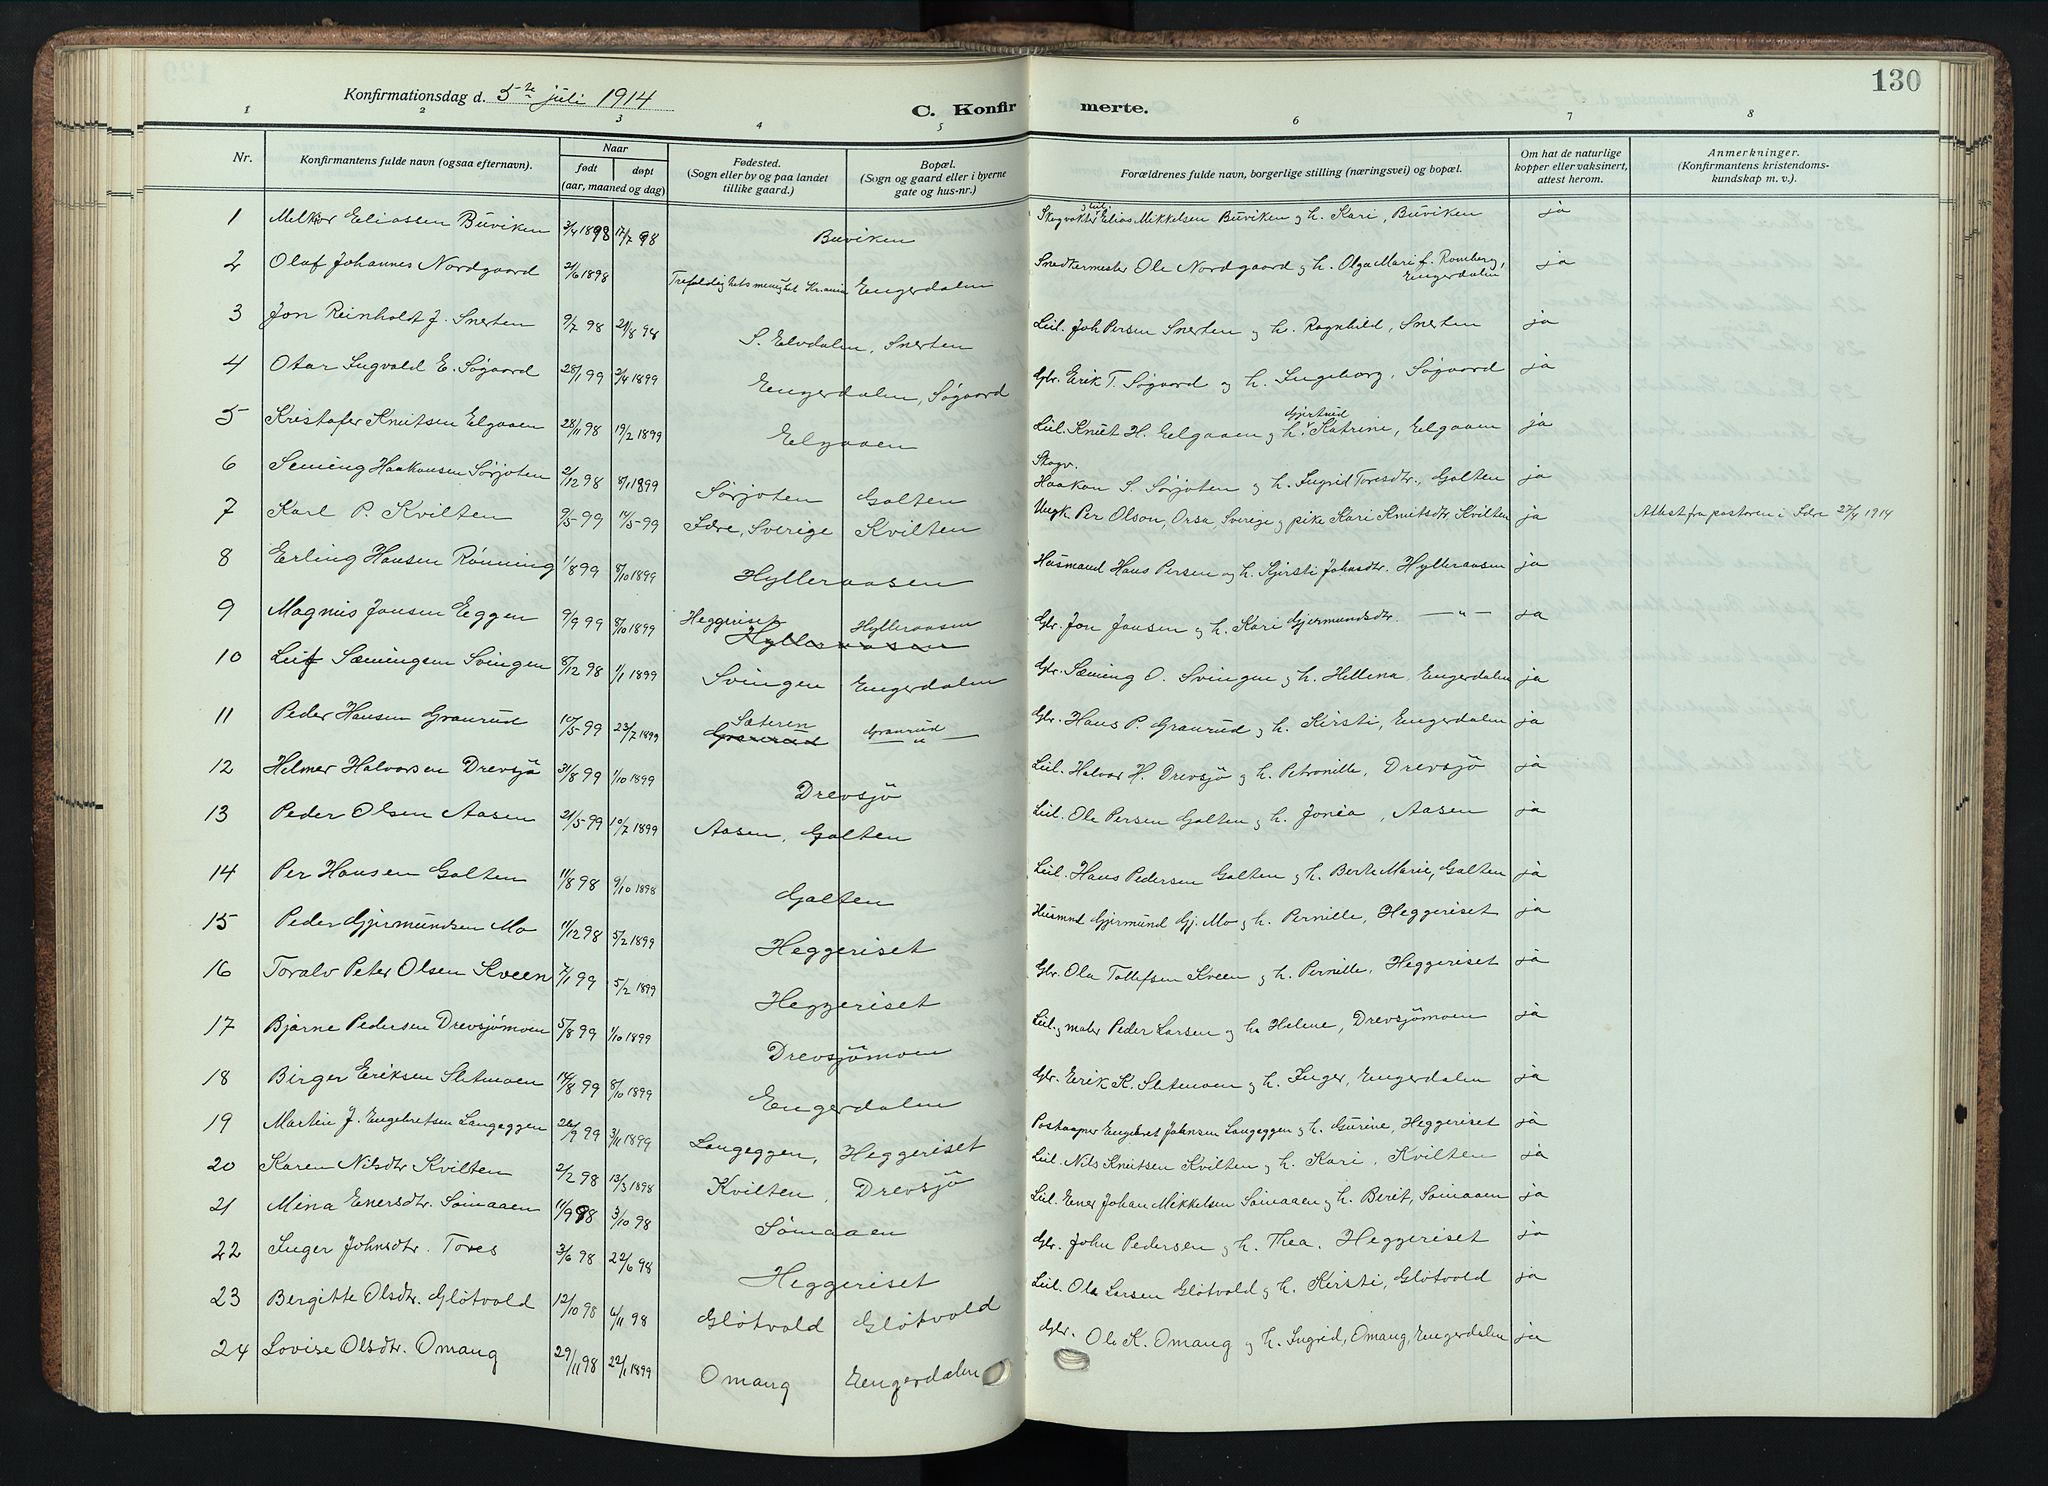 130
Konfirmationsdag d. 5te juli 1914
C. Konfirmerte.
1 2 3 4 5 6 7 8
Nr. Konfirmantens fulde navn (ogsaa efternavn). Naar født døpt (aar, maaned og dag) Fødested. (Sogn eller by og paa landet tillike gaard.) Bopæl. (Sogn og gaard eller i byerne gate og hus-nr.) Forældrenes fulde navn, borgerlige stilling (næringsvei) og bopæl. Om hat de naturlige kopper eller vaksinert, attest herom. Anmerkninger. (Konfirmantens kristendomskundskap m. v.).
1 Melkior Eliassen Buviken 3/4 1898 17/7 98 Buviken Skogvokter Elias Mikkelsen Buviken og h. Kari, Buviken ja
2 Olaf Johannes Nordgaard 21/6 1898 Trefoldighets menighet Kr.ania Engerdalen Snedkermester Ole Nordgaard og h. Olga Mari f. Romberg, Engerdalen ja
3 Jon Reinholdt J. Snerten 9/7 98 21/8 98 S. Elvdalen, Snerten Leil. Joh Persen Snerten og h. Ragnhild, Snerten ja
4 Otar Ingvald E. Søgaard 28/1 99 2/4 1899 Engerdalen, Søgaard Gbr. Erik T. Søgaard og h. Ingeborg, Søgaard ja
5 Kristofer Knutsen Elgaaen 28/11 98 19/2 1899 Elgaaen Leil. Knut H. Elgaaen og h. Gjertrud Katrine, Elgaaen ja
6 Seming Haakonsen Sørjoten 2/12 98 8/1 1899 Sørjoten Galten Skogv. Haakon S. Sørjoten og h. Ingrid Toresdtr., Galten ja
7 Karl P. Kvilten 9/5 99 14/5 99 Idre, Sverige Kvilten Ungk. Per Olson, Orsa, Sverige og pike Kari Knutsdtr Kvilten ja Attest fra pastoren i Idre 27/4 1914
8 Erling Hansen Rønning 1/8 99 8/10 1899 Hylleraasen Husmand Hans Persen og h. Kjersti Johnsdtr. Hylleraasen ja
9 Magnus Jonsen Eggen 9/9 99 8/10 1899 Heggeriset Hylleraasen Hylleraasen Gbr. Jon Jonsen og h. Kari Gjermundsdtr. — " — ja
10 Leif Sæmingsen Svingen 8/12 98 1/1 1899 Svingen Engerdalen Gbr. Sæming O. Svingen og h. Hellena, Engerdalen ja
11 Peder Hansen Granrud 10/5 99 23/7 1899 Sæteren Granrud Granrud — " — Gbr. Hans P. Granrud og h. Kirsti, Engerdalen ja
12 Helmer Halvorsen Drevsjö 31/8 99 1/10 1899 Drevsjö Leil. Halvor H. Drevsjö og h. Petronille, Drevsjö ja
13 Peder Olsen Aasen 21/5 99 10/7 1899 Aasen, Galten Leil. Ole Persen Galten og h. Jonea, Aasen ja
14 Per Hansen Galten 11/8 98 9/10 1898 Galten Leil. Hans Pedersen Galten og h. Berte Marie, Galten ja
15 Peder Gjermundsen Mo 11/12 98 5/2 1899 Heggeriset Husmnd Gjermund Gj. Mo og h. Pernille, Heggeriset ja
16 Toralv Peter Olsen Kveen 7/1 99 5/2 1899 Heggeriset Gbr. Ola Tollefsen Kveen og h. Pernille, Heggeriset ja
17 Bjarne Pedersen Drevsjömoen 5/8 99 1/10 1899 Drevsjömoen Leil. og maler Peder Larsen og h. Helene, Drevsjömoen ja
18 Birger Eriksen Sletmoen 14/8 99 8/10 1899 Engerdalen Gbr. Erik K. Sletmoen og h. Inger, Engerdalen ja
19 Martin J. Engebretsen Langeggen 26/9 99 3/11 1899 Langeggen, Heggeriset Postaapner Engebret Johnsen Langeggen og h. Gurine, Heggeriset ja
20 Karen Nilsdtr Kvilten 2/2 98 13/3 1898 Kvilten, Drevsjö Leil. Nils Knutsen Kvilten og h. Kari, Kvilten ja
21 Mina Enersdtr. Sømaaen 11/9 98 3/10 98 Sømaaen Leil. Ener Johan Mikkelsen Sømaaen og h. Berit, Sømaaen ja
22 Inger Johnsdtr. Tores 3/6 98 22/6 98 Heggeriset Gbr. John Pedersen og h. Thea, Heggeriset ja
23 Bergitte Olsdtr. Gløtvold 12/10 98 6/11 98 Gløtvold Gløtvold Leil. Ola Larsen Gløtvold og h. Kirsti, Gløtvold ja
24 Lovise Olsdtr. Omang 29/11 98 22/1 1899 Omang Engerdalen Gbr. Ole K. Omang og h. Ingrid, Omang, Engerdalen ja